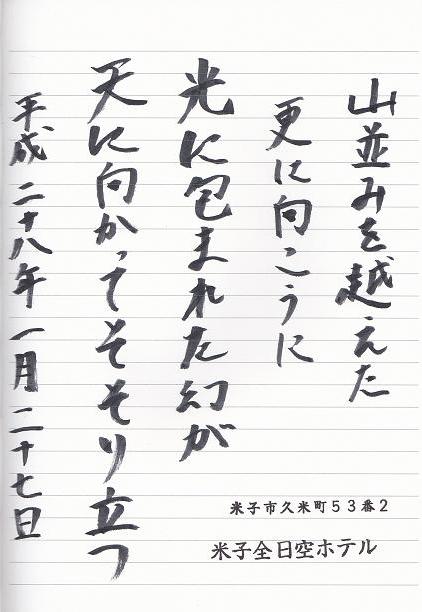 山並みを越えた
更に向こうに
光に包まれた幻が
天に向かってそそり立つ
平成二十八年一月二十七日
米子市久米町53番2
米子全日空ホテル